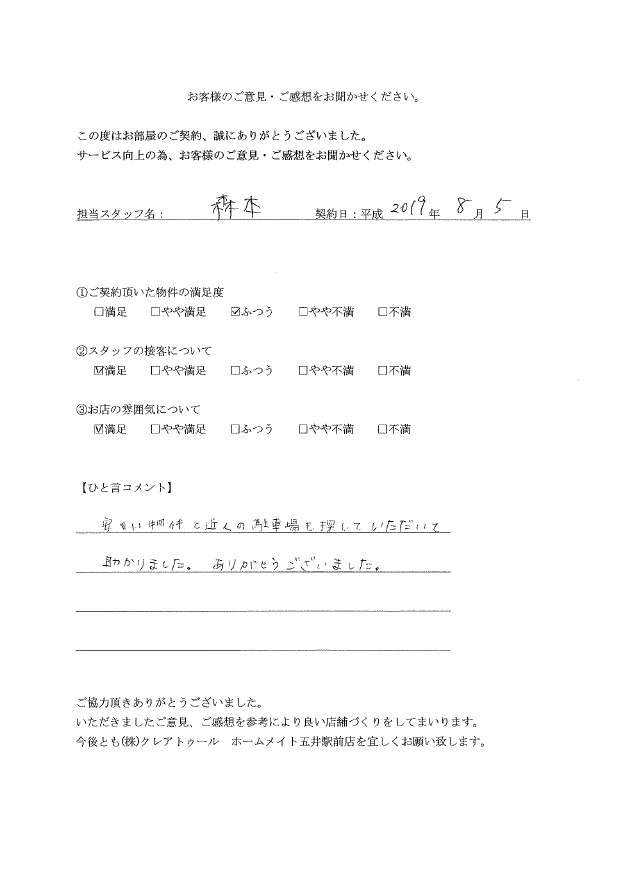 お客様のご意見・ご感想をお聞かせください。
この度はお部屋のご契約、誠にありがとうございました。
サービス向上の為、お客様のご意見・ご感想をお聞かせください。
担当スタッフ名： 森本 契約日：平成 2019 年 8 月 5 日
①ご契約頂いた物件の満足度
□満足 □やや満足 ☑ふつう □やや不満 □不満
②スタッフの接客について
☑満足 □やや満足 □ふつう □やや不満 □不満
③お店の雰囲気について
☑満足 □やや満足 □ふつう □やや不満 □不満
【ひと言コメント】
い物件と近くの駐車場も探していただいて
助かりました。 ありがとうございました。
ご協力頂きありがとうございました。
いただきましたご意見、ご感想を参考により良い店舗づくりをしてまいります。
今後とも(株)クレアトゥール ホームメイト五井駅前店を宜しくお願い致します。